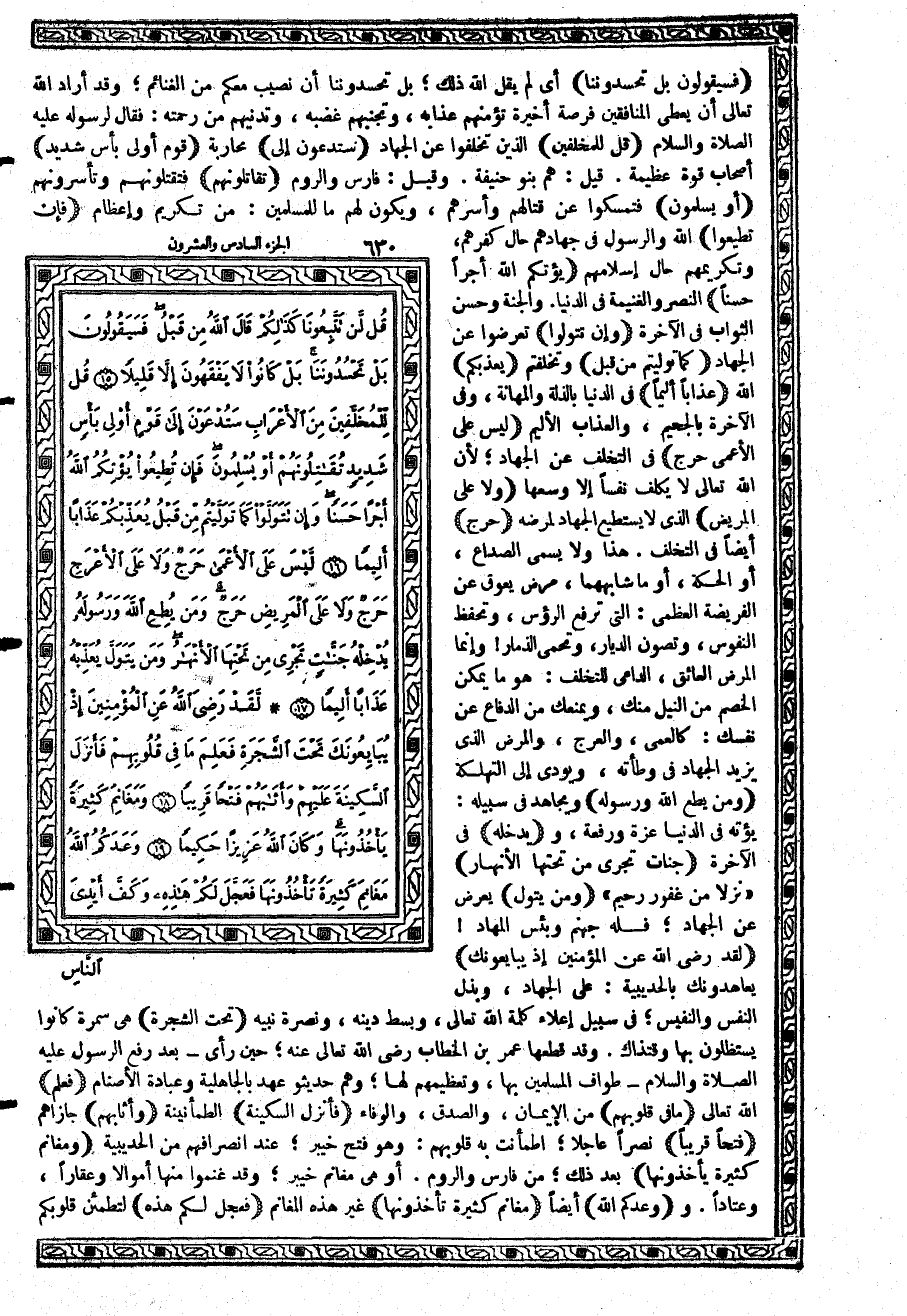 (فسيقولون بل تحسدوننا) أى لم يقل الله ذلك ؛ بل تحسدوننا أن نصيب معكم من الغنائم ؛ وقد أراد الله
تعالى أن يعطى المنافقين فرصة أخيرة تؤمنهم عذابه ، وتجنبهم غضبه ، وتدنيهم من رحمته : فقال لرسوله عليه
الصلاة والسلام (قل للمخلفين) الذين تخلفوا عن الجهاد (ستدعون إلى) محاربة (قوم أولى بأس شديد)
أصحاب قوة عظيمة . قيل : هم بنو حنيفة . وقيل : فارس والروم (تقاتلونهم) فتقتلونهم وتأسرونهم
(أو يسلمون) فتمسكوا عن قتالهم وأسرهم ، ويكون لهم ما للمسلمين : من تكريم وإعظام (فإن
تطيعوا) الله والرسول فى جهادهم حال كفرهم،
وتكريمهم حال إسلامهم (يؤتكم الله أجراً
حسناً) النصر والغنيمة فى الدنيا. والجنة وحسن
الثواب فى الآخرة (وإن تتولوا) تعرضوا عن
الجهاد (كما توليتم من قبل) وتخلفتم (يعذبكم)
الله (عذاباً أليماً) فى الدنيا بالذلة والمهانة ، وفى
الآخرة بالجحيم ، والعذاب الأليم (ليس على
الأعمى حرج) فى التخلف عن الجهاد ؛ لأن
الله تعالى لا يكلف نفساً إلا وسعها (ولا على
المريض) الذى لا يستطيع الجهاد لمرضه (حرج)
أيضاً فى التخلف . هذا ولا يسمى الصداع ،
أو الحكة ، أو ما شابههما ، مرض يعوق عن
الفريضة العظمى : التى ترفع الرؤس ، وتحفظ
النفوس ، وتصون الديار، وتحمى الذمار! وإنما
المرض العائق ، الداعى للتخلف : هو ما يمكن
الخصم من النيل منك ، ويمنعك من الدفاع عن
نفسك : كالعمى ، والعرج ، والمرض الذى
يزيد الجهاد فى وطأته ، ويودى إلى التهلكة
(ومن يطع الله ورسوله) ويجاهد فى سبيله :
يؤته فى الدنيا عزة ورفعة ، و (يدخله) فى
الآخرة (جنات تجرى من تحتها الأنهار)
«نزلا من غفور رحيم» (ومن يتول) يعرض
عن الجهاد ؛ فله جهنم وبئس المهاد !
(لقد رضى الله عن المؤمنين إذ يبايعونك)
يعاهدونك بالحديبية : على الجهاد ، وبذل
٦٣٠ الجزء السادس والعشرون
قُل لَّن تَتَّبِعُونَا كَذَٰلِكُمْ قَالَ ٱللَّهُ مِن قَبْلُ ۖ فَسَيَقُولُونَ
بَلْ تَحْسُدُونَنَا ۚ بَلْ كَانُوا۟ لَا يَفْقَهُونَ إِلَّا قَلِيلًا ⟨١٥⟩ قُل
لِّلْمُخَلَّفِينَ مِنَ ٱلْأَعْرَابِ سَتُدْعَوْنَ إِلَىٰ قَوْمٍ أُو۟لِى بَأْسٍ
شَدِيدٍ تُقَـٰتِلُونَهُمْ أَوْ يُسْلِمُونَ ۖ فَإِن تُطِيعُوا۟ يُؤْتِكُمُ ٱللَّهُ
أَجْرًا حَسَنًا ۖ وَإِن تَتَوَلَّوْا۟ كَمَا تَوَلَّيْتُم مِّن قَبْلُ يُعَذِّبْكُمْ عَذَابًا
أَلِيمًا ⟨١٦⟩ لَّيْسَ عَلَى ٱلْأَعْمَىٰ حَرَجٌ وَلَا عَلَى ٱلْأَعْرَجِ
حَرَجٌ وَلَا عَلَى ٱلْمَرِيضِ حَرَجٌ ۗ وَمَن يُطِعِ ٱللَّهَ وَرَسُولَهُۥ
يُدْخِلْهُ جَنَّـٰتٍ تَجْرِى مِن تَحْتِهَا ٱلْأَنْهَـٰرُ ۖ وَمَن يَتَوَلَّ يُعَذِّبْهُ
عَذَابًا أَلِيمًا ⟨١٧⟩ * لَّقَدْ رَضِىَ ٱللَّهُ عَنِ ٱلْمُؤْمِنِينَ إِذْ
يُبَايِعُونَكَ تَحْتَ ٱلشَّجَرَةِ فَعَلِمَ مَا فِى قُلُوبِهِمْ فَأَنزَلَ
ٱلسَّكِينَةَ عَلَيْهِمْ وَأَثَـٰبَهُمْ فَتْحًا قَرِيبًا ⟨١٨⟩ وَمَغَانِمَ كَثِيرَةً
يَأْخُذُونَهَا ۗ وَكَانَ ٱللَّهُ عَزِيزًا حَكِيمًا ⟨١٩⟩ وَعَدَكُمُ ٱللَّهُ
مَغَانِمَ كَثِيرَةً تَأْخُذُونَهَا فَعَجَّلَ لَكُمْ هَـٰذِهِۦ وَكَفَّ أَيْدِىَ
ٱلنَّاسِ
النفس والنفيس ؛ فى سبيل إعلاء كلمة الله تعالى ، وبسط دينه ، ونصرة نبيه (تحت الشجرة) هى سمرة كانوا
يستظلون بها وقتذاك . وقد قطعها عمر بن الخطاب رضى الله تعالى عنه ؛ حين رأى – بعد رفع الرسول عليه
الصلاة والسلام – طواف المسلمين بها ، وتعظيمهم لها ؛ وهم حديثو عهد بالجاهلية وعبادة الأصنام (فعلم)
الله تعالى (مافى قلوبهم) من الإيمان ، والصدق ، والوفاء (فأنزل السكينة) الطمأنينة (وأثابهم) جازاهم
(فتحاً قريباً) نصراً عاجلا ؛ اطمأنت به قلوبهم : وهو فتح خيبر ؛ عند انصرافهم من الحديبية (ومغانم
كثيرة يأخذونها) بعد ذلك ؛ من فارس والروم . أو هى مغانم خيبر ؛ وقد غنموا منها أموالا وعقاراً ،
وعتاداً . و (وعدكم الله) أيضاً (مغانم كثيرة تأخذونها) غير هذه المغانم (فعجل لكم هذه) لتطمئن قلوبكم